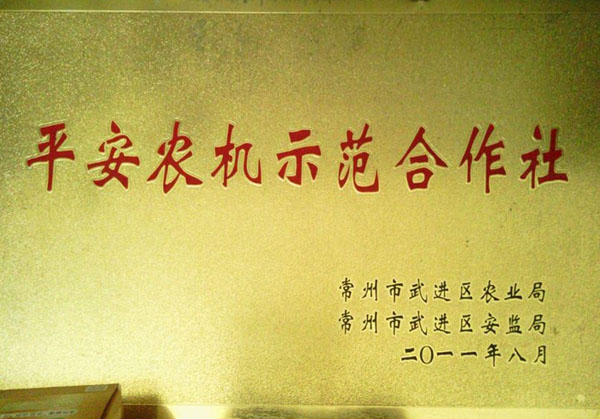 平安农机示范合作社
常州市武进区农业局
常州市武进区安监局
二〇一一年八月